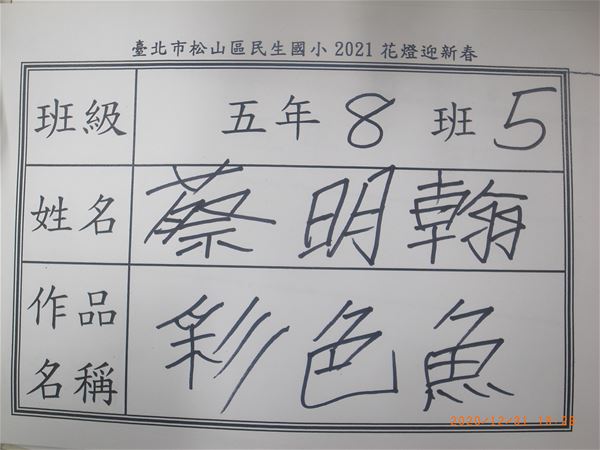 臺北市松山區民生國小 2021 花燈迎新春
班級 五年 8 班 5
姓名 蔡明翰
作品名稱 彩色魚